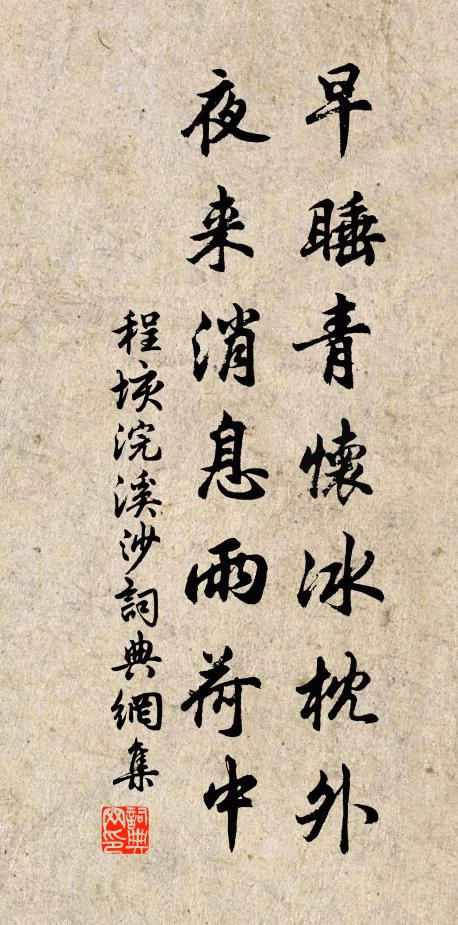 早睡青懷冰枕外
夜来消息雨荷中
程垓浣溪沙詞典網集
詞典网印